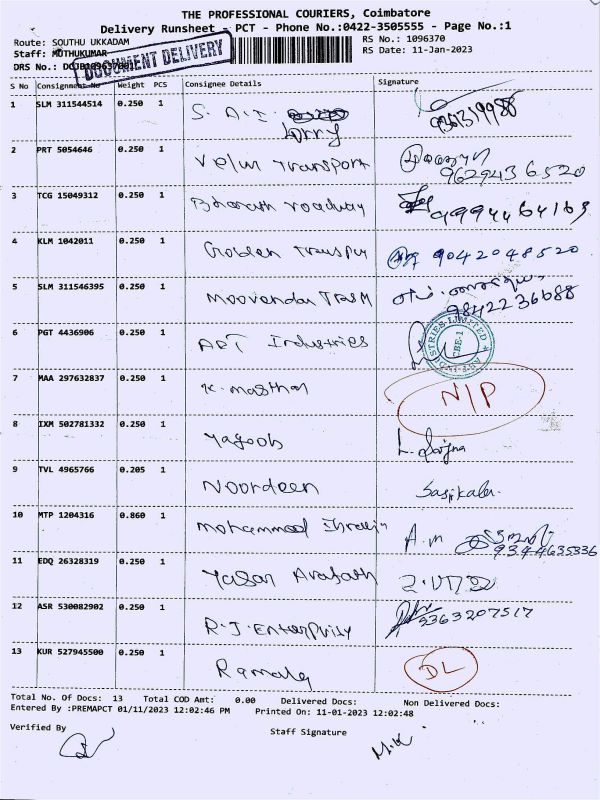 THE PROFESSIONAL COURIERS, Coimbatore
Delivery Runsheet - PCT - Phone No.:0422-3505555 - Page No.:1
Route: SOUTHU UKKADAM RS No.: 1096370
Staff: MOTHUKUMAR RS Date: 11-Jan-2023
DRS No.:
DOCUMENT DELIVERY
S No Consignment No Weight PCS Consignee Details Signature
1 SLM 311544514 0.250 1 S. A. I.
Lorry
2 PRT 5054646 0.250 1 Velur Transport
9629436520
3 TCG 15049312 0.250 1 Bharath roadway 9994464163
4 KLM 1042011 0.250 1 Golden Transpur 9042048520
5 SLM 311546395 0.250 1 Moovendar
9842236688
6 PGT 4436906 0.250 1 AET Industries
CBE-1
7 MAA 297632837 0.250 1 K. Masthan N/P
8 IXM 502781332 0.250 1 Yagoob
9 TVL 4965766 0.205 1 Noordeen Sasikala.
10 MTP 1204316 0.860 1 Mohammed A.M
9344635336
11 EDQ 26328319 0.250 1 Yasar Arafath
12 ASR 530082902 0.250 1 R.J. Enterprisy 9363207517
13 KUR 527945500 0.250 1 DL
Total No. Of Docs: 13 Total COD Amt: 0.00 Delivered Docs: Non Delivered Docs:
Entered By :PREMAPCT 01/11/2023 12:02:46 PM Printed On: 11-01-2023 12:02:48
Verified By Staff Signature
M.K